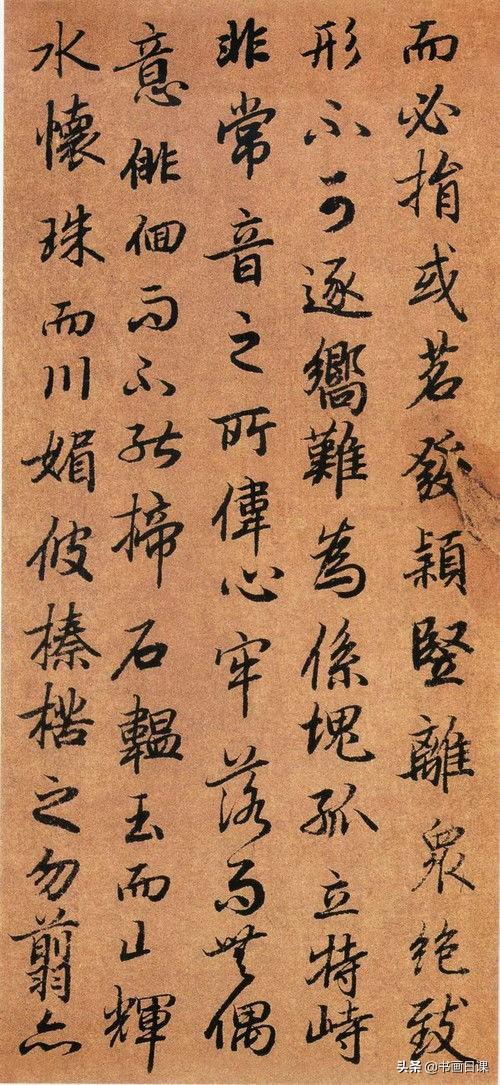 而必揹或苕發穎竪離衆絶致
形不可逐嚮難為係塊孤立特峙
非常音之所偉心牢落而無偶
意俳佪而不能揥石韞玉而山輝
水懷珠而川媚彼榛楛之勿翦亦
头条 @书画日课